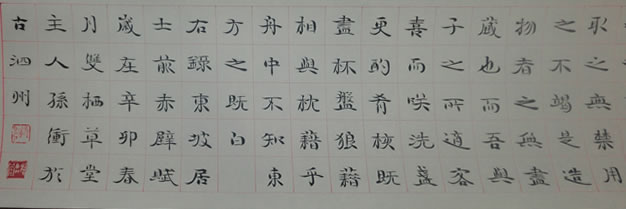 取之無禁用
之不竭是造
物者之無盡
藏也而吾與
子之所適客
喜而咲洗盞
更酌肴核既
盡杯盤狼藉
相與枕藉乎
舟中不知東
方之既白
右錄東坡居
士前赤壁賦
歲在辛卯春
月雙栖草堂
主人孫衝於
古泗州